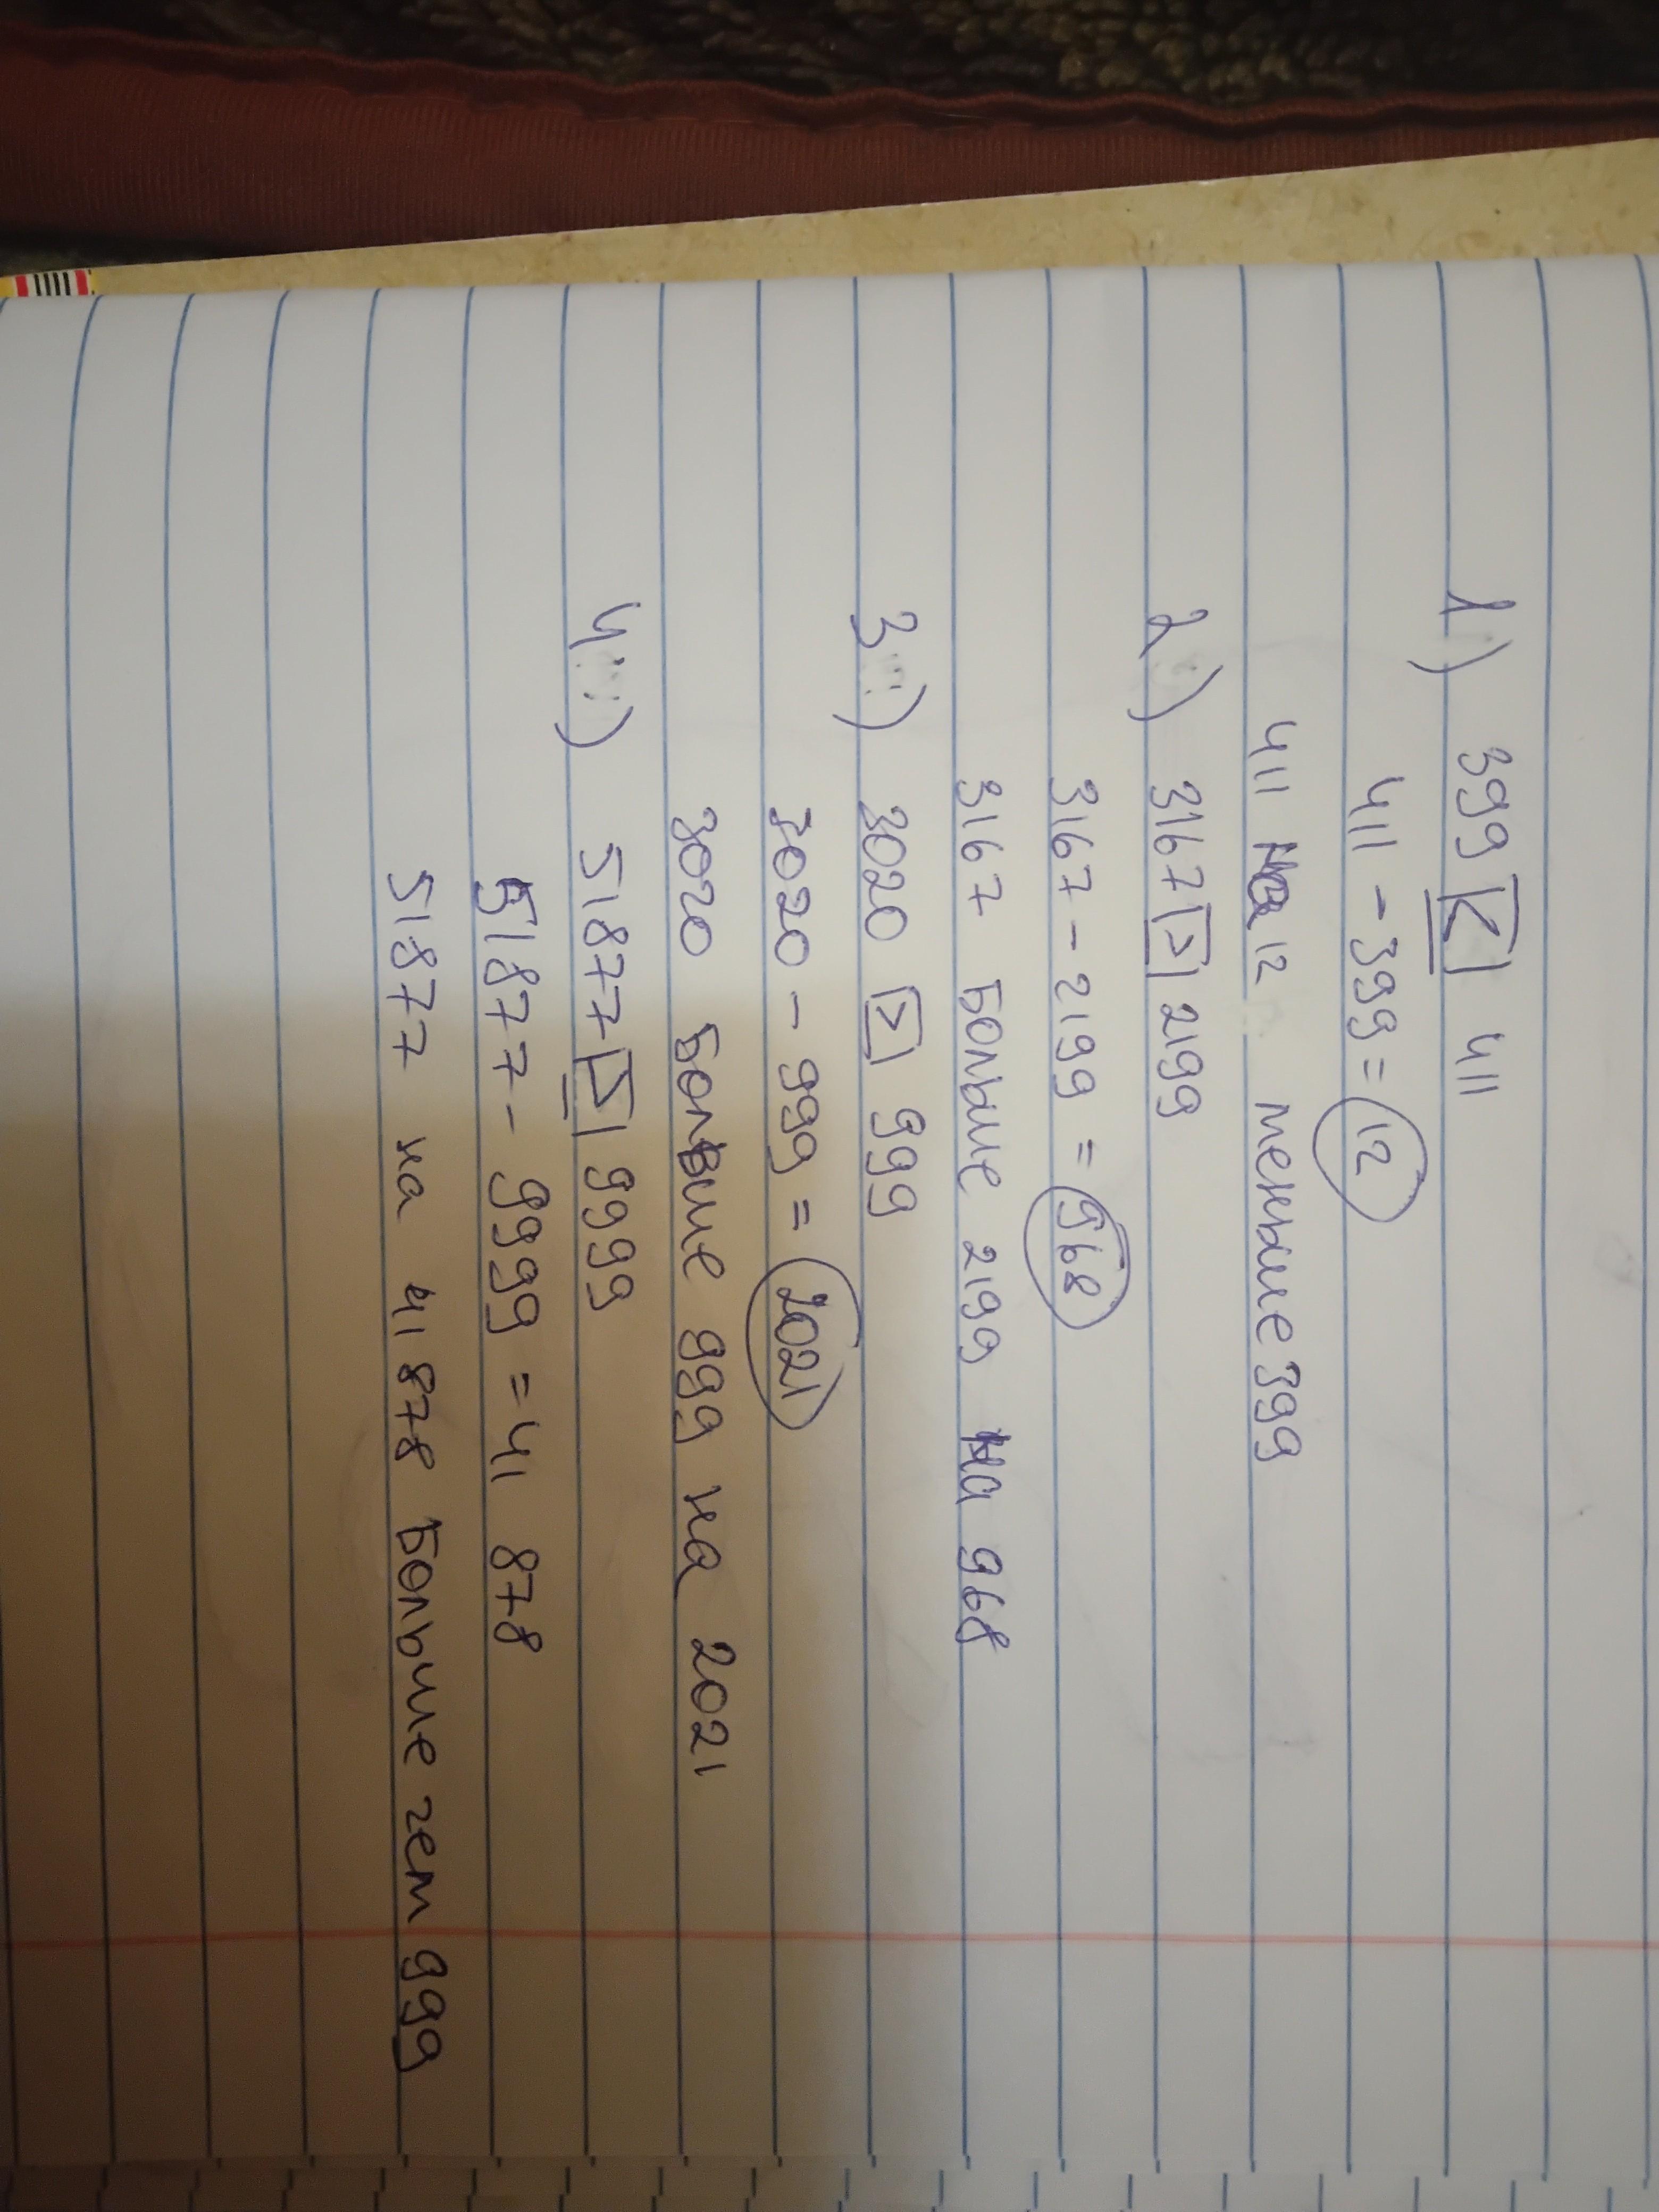 1) 399 < 411
411 - 399 = 12
411 на 12 меньше 399
2) 3167 > 2199
3167 - 2199 = 968
3167 больше 2199 на 968
3) 3020 > 999
3020 - 999 = 2021
3020 больше 999 на 2021
4) 51877 > 9999
51877 - 9999 = 41 878
51877 на 41 878 больше чем 999